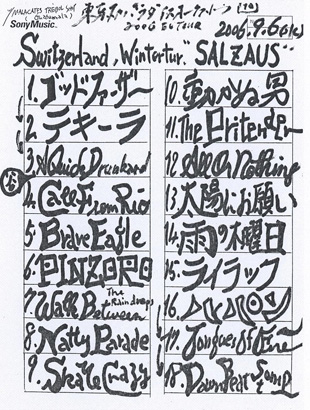 SonyMusic.
東京スカパラダイスオーケストラ
2006 EU TOUR
2006.9.6(水)
Switzerland, Wintertur." SALZAUS"
1. ゴッドファーザー
2. テキーラ
3. A Quick Drunkard
4. Call From Rio
5. Brave Eagle
6. PINZORO
7. Walk Between The Raindrops
8. Natty Parade
9. Skate Crazy
10. 動かぬ男
11. The Pretender
12. All Or Nothing
13. 太陽にお願い
14. 雨の木曜日
15. ライラック
16.
17. Tongues Of Fire
18. Down Beat Stomp